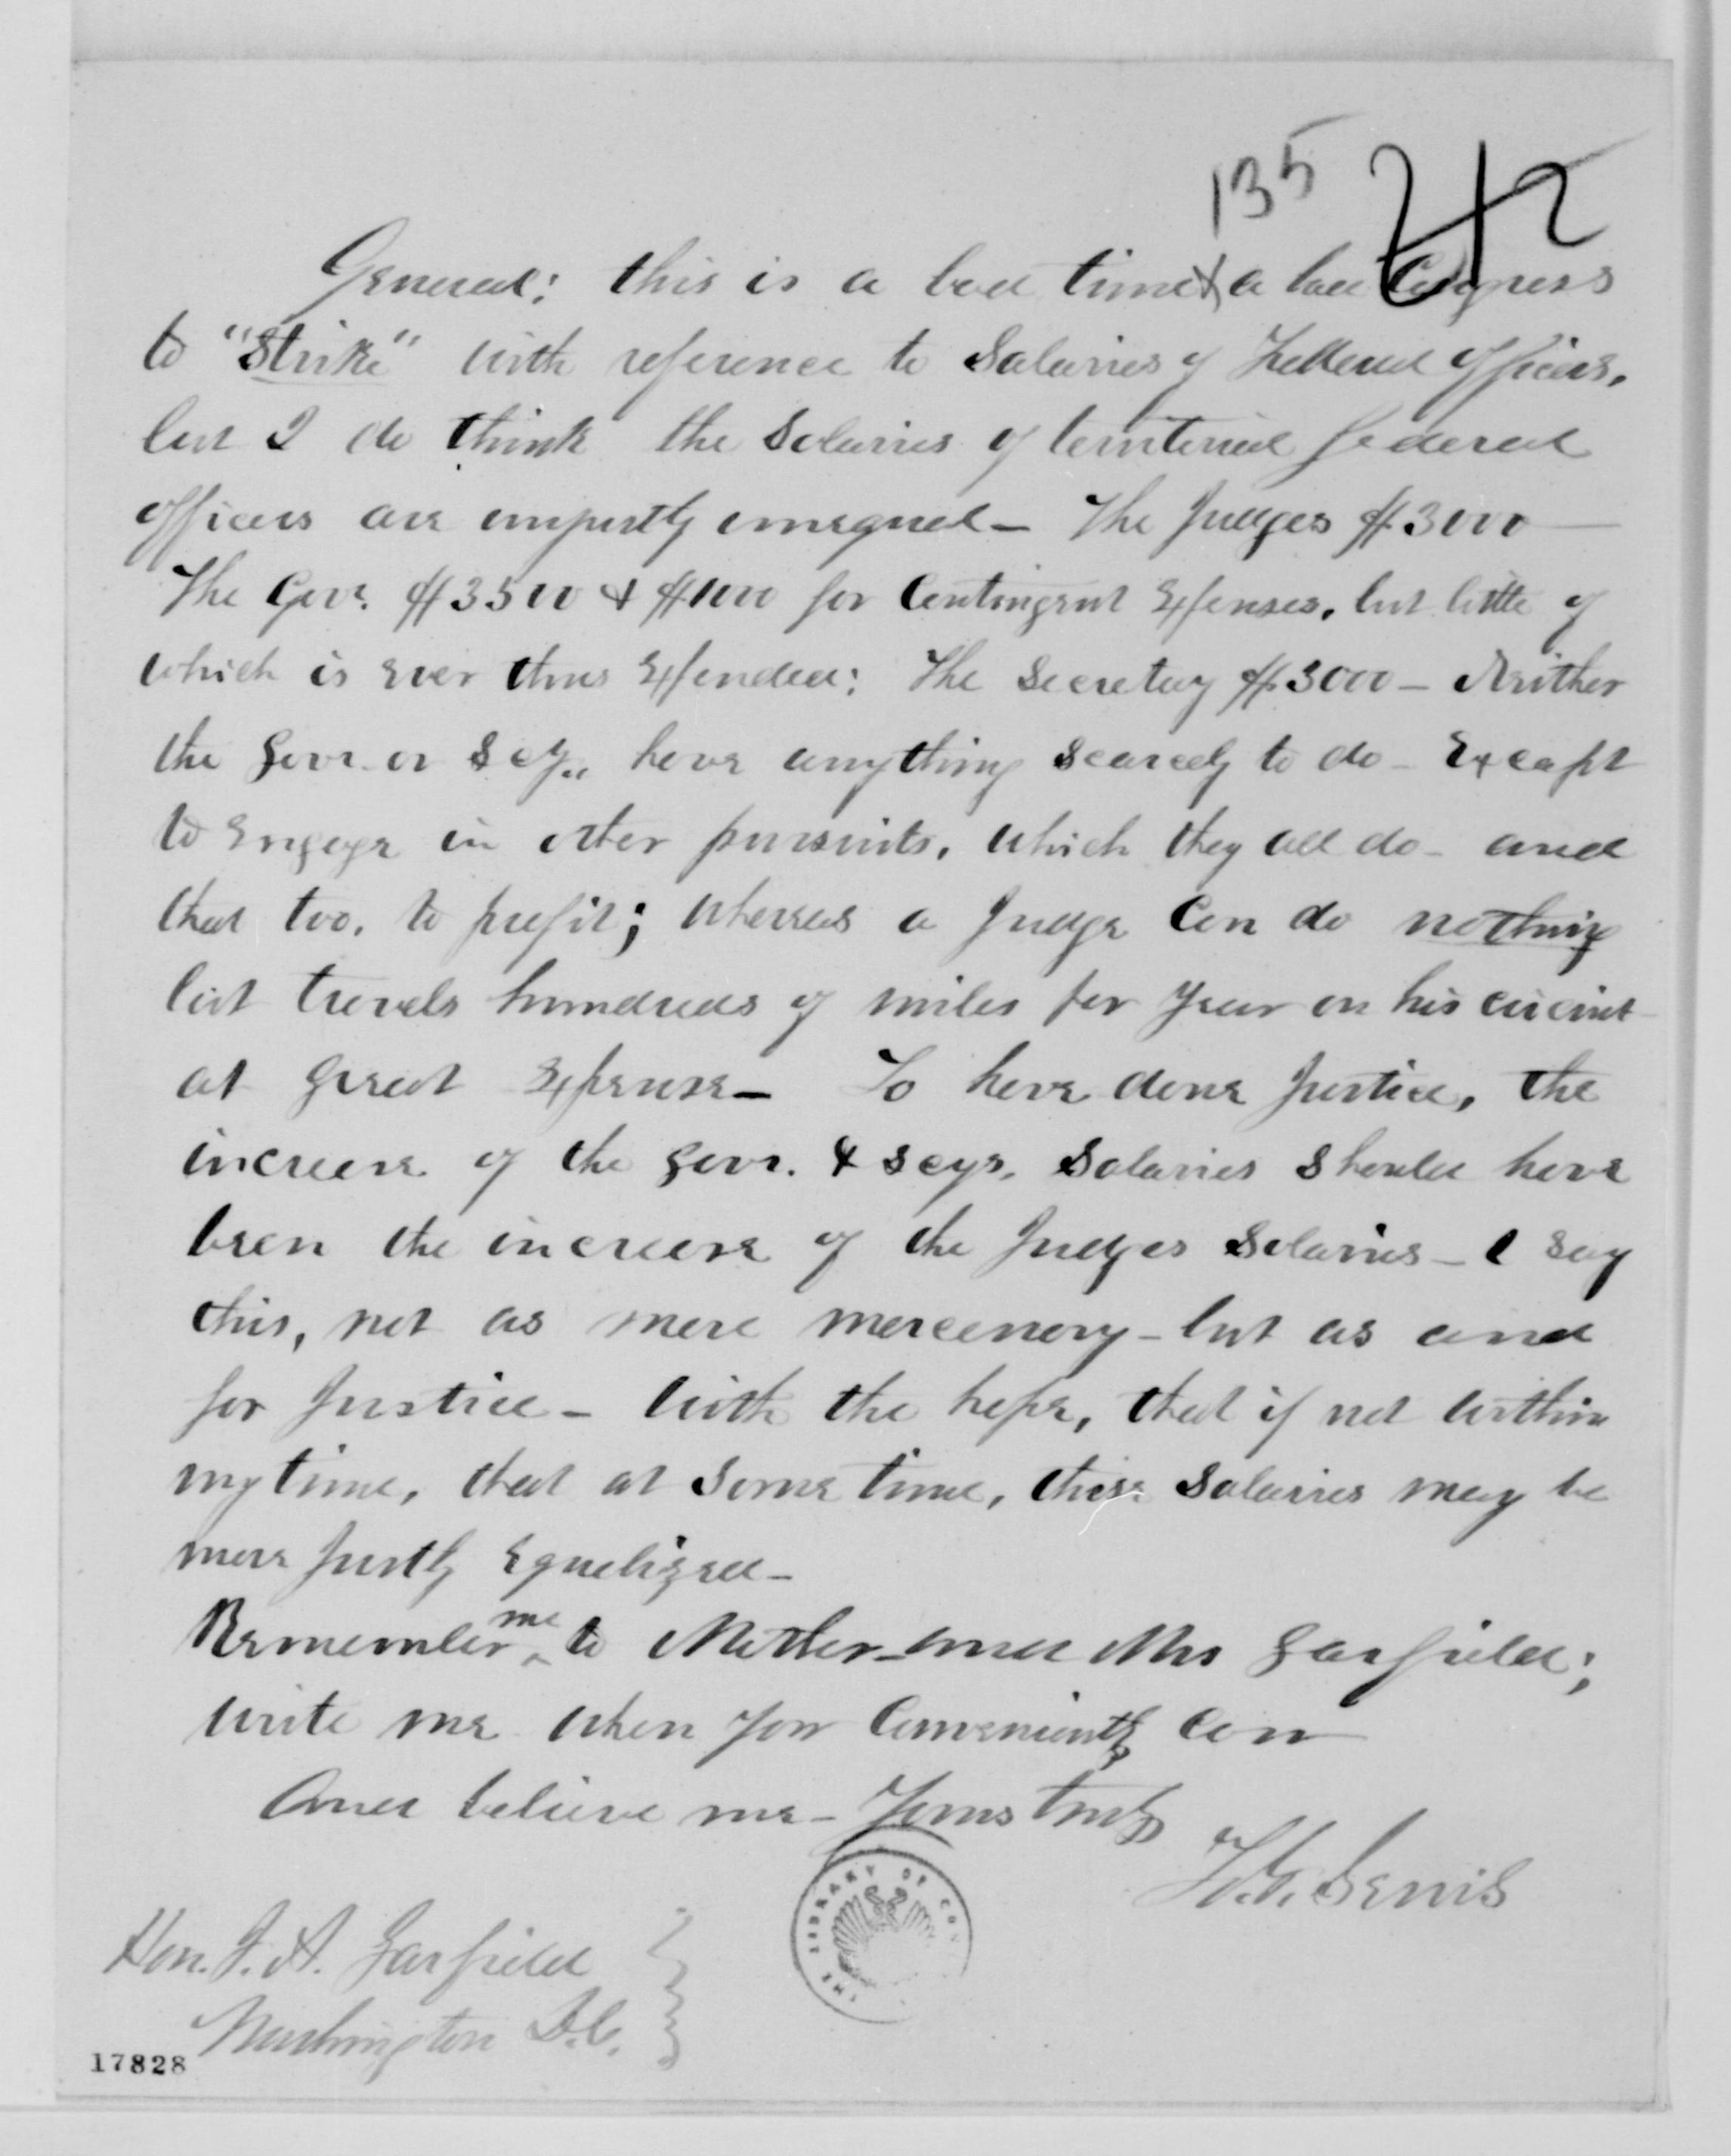 135 242
General: this is a bad time & a bad Congress
to "Strike" with reference to Salaries of Federal officers,
but I do think the Salaries of territorial federal
officers are unjustly unequal — The Judges $3000 —
The Govr. $3500 & $1000 for Contingent Expenses, but little of
which is ever thus Expended: The Secretary $3000 — Neither
the Govr. or Secy,, have anything scarcely to do — Except
to Engage in other pursuits, which they all do — and
that too, to profit; whereas a Judge Can do nothing
but travels hundreds of miles per year on his circuit
at great Expense — To have done Justice, the
increase of the Govr. & Secys. Salaries should have
been the increase of the Judges Salaries — I say
this, not as mere mercenary — but as and
for Justice — with the hope, that if not within
my time, that at some time, these Salaries may be
more justly Equalized —
Remember me to Mother and Mrs Garfield;
write me when you Conveniently Can
And believe me — Yours truly
Hon. J. A. Garfield
Washington D.C.
THE LIBRARY OF CON
17828